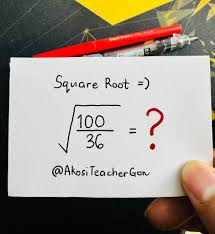 Square Root =)
√100/36 = ?
@AkosiTeacherGon